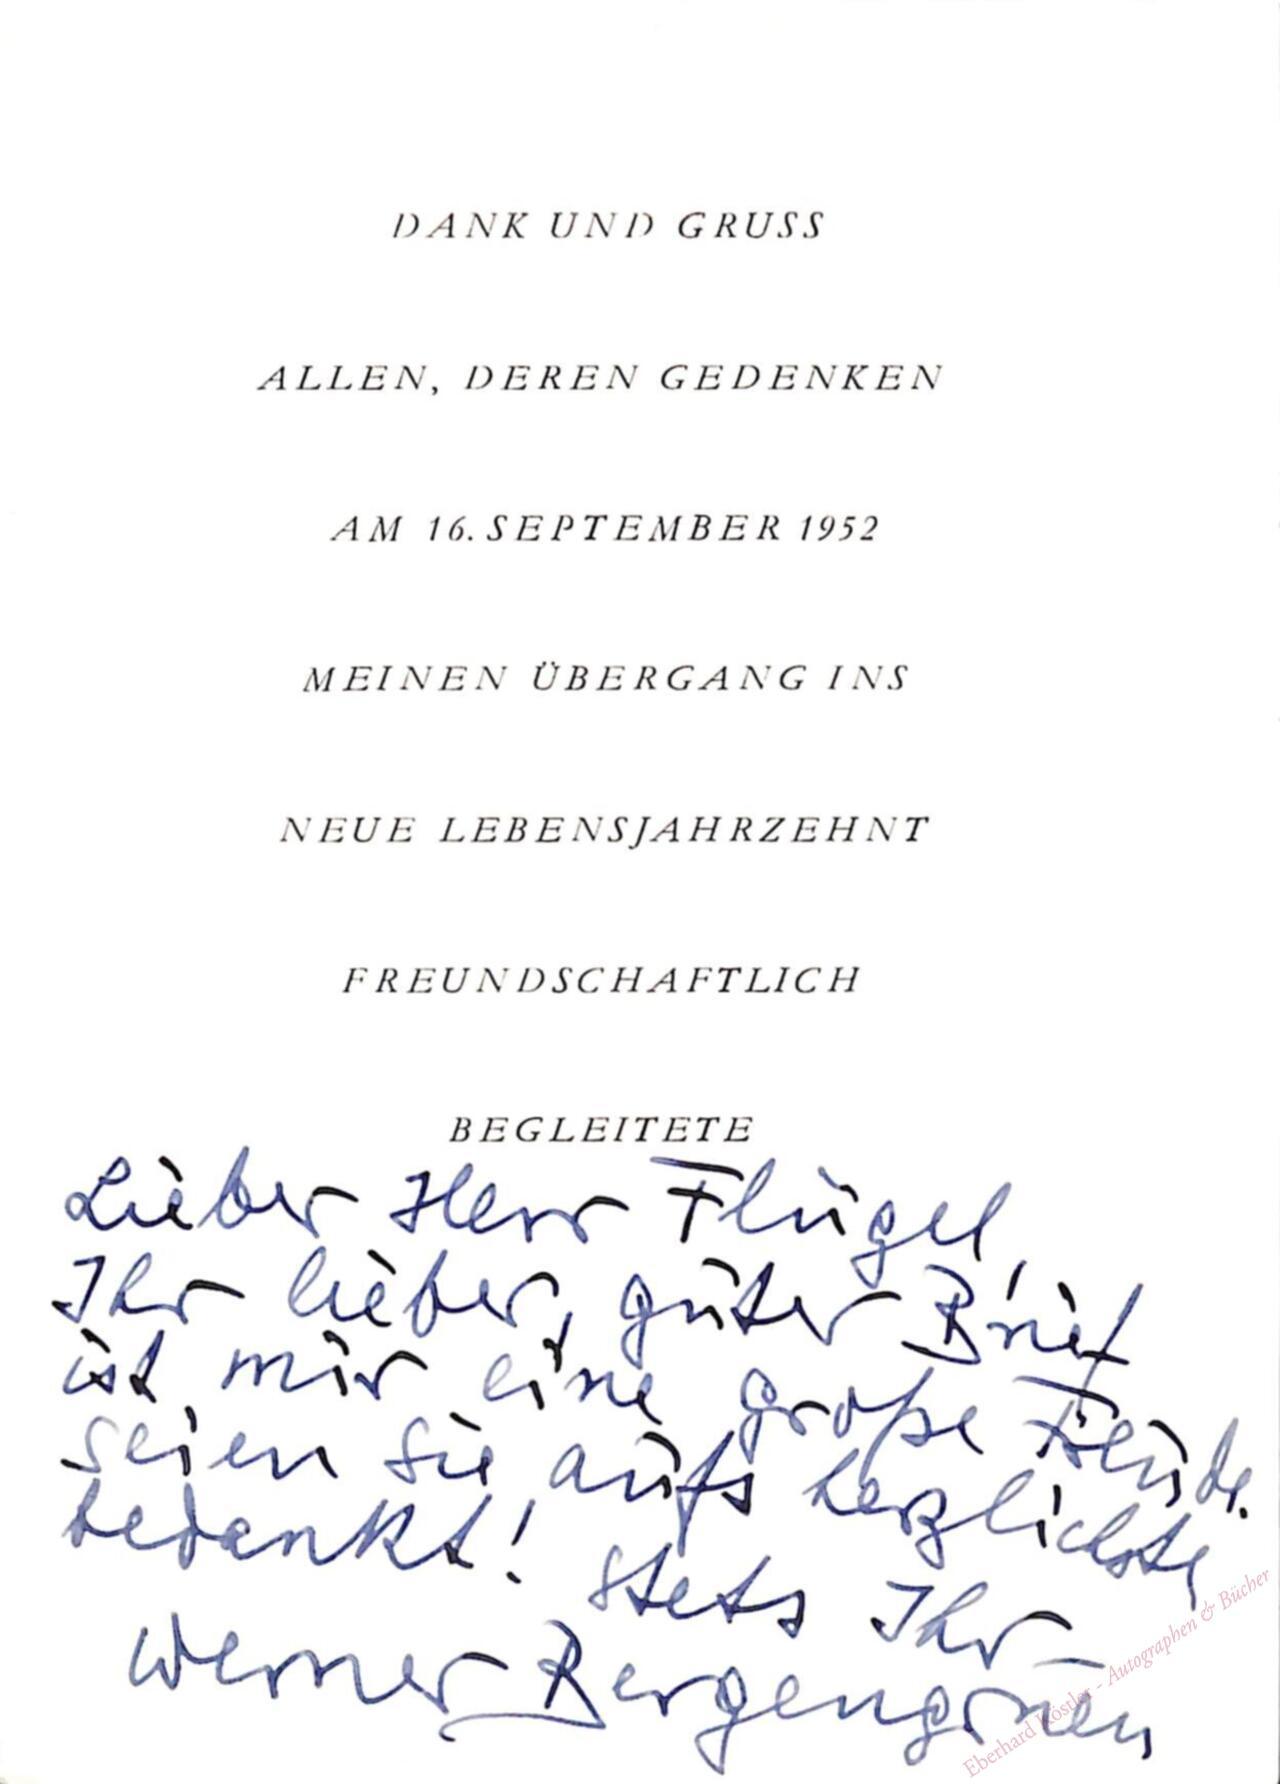 DANK UND GRUSS
ALLEN, DEREN GEDENKEN
AM 16. SEPTEMBER 1952
MEINEN ÜBERGANG INS
NEUE LEBENSJAHRZEHNT
FREUNDSCHAFTLICH
BEGLEITETE
Lieber Herr Flügel,
Ihr lieber, guter Brief
ist mir eine große Freude.
Seien Sie aufs herzlichste
bedankt! Stets Ihr
Werner Bergengruen
Eberhard Köstler - Autographen & Bücher